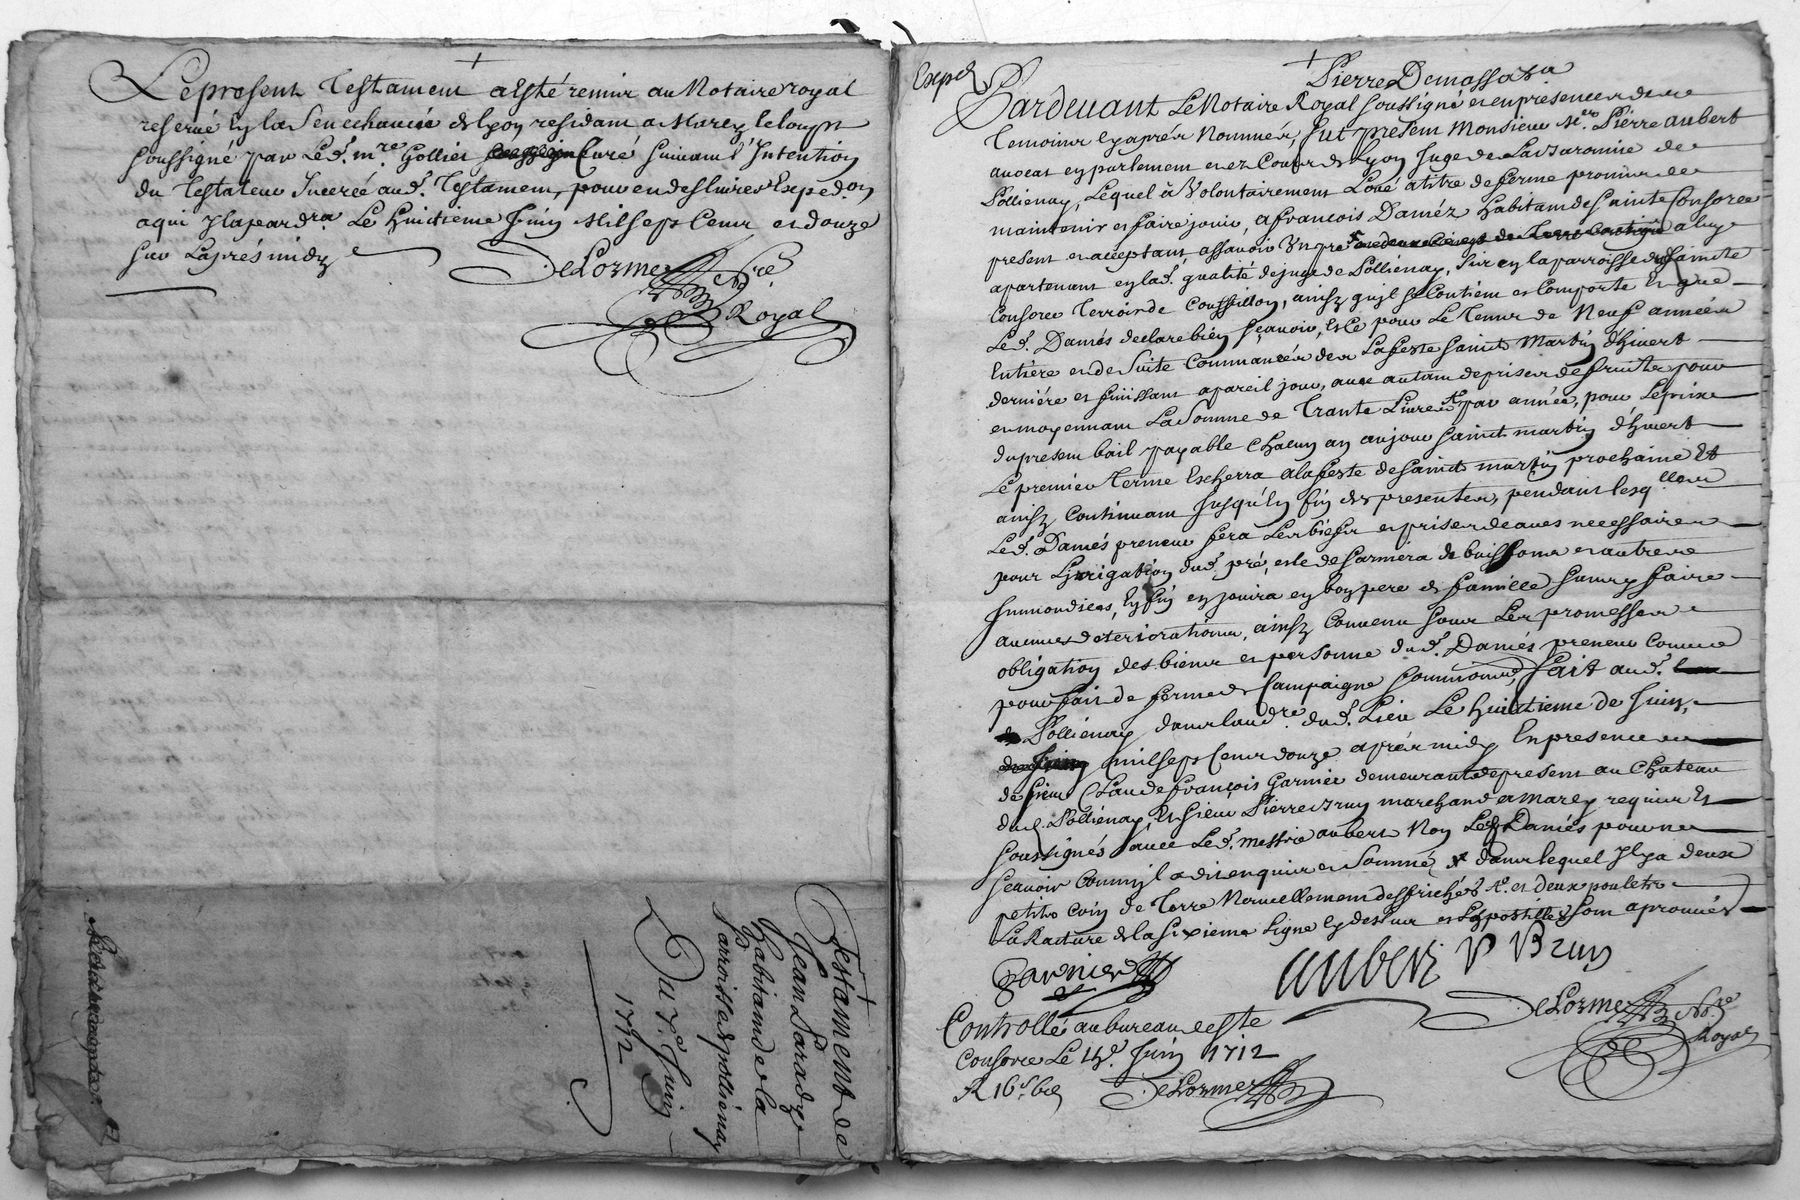 Le present Testament a esté remis au Notaire royal
reservé en la Senechaucée de Lyon residant a Marcy le loup
soussigné par Led. mre. Gollier Curé suivant l'Intention
du Testateur Inserée aud. Testament, pour en deslivrer Exped.on
a qui Il apartdra. Le huitieme Juin Mil sept Cent et douze
sur L'aprés midy
DeLorme Nre.
Royal
Testament de
Jean
habitant de la
Parroisse de pollienay
Du 7e. Juin
1712
Exped.
Pierre
Pardevant Le Notaire Royal soussigné et en presence des
Temoins cy aprés Nommés, fut present Monsieur Me. Pierre aubert
avocat en parlement et ez Cours de Lyon Juge de La Baronnie de
Pollienay, Lequel à Volontairement Loué a titre de ferme promis de
maintenir et faire jouir, a françois Daméz habitant de Sainte Consorce
present et acceptant assavoir Un pré a luy
apartenant en lad. qualité de juge de Pollienay, sis en la parroisse de Sainte
Consorce Terroir de Coussillon, ainsy qu'il se Contient et Comporte et que
Led. Damés declare bien sçavoir, Et Ce pour Le Temps de Neuf années
Entiere et de Suite Commancées de La feste Saint Martin d'hivert
derniére et finissant a pareil jour, avec autant de prises de fruits pour
et moyennant La Somme de Trante Livres par année, pour Le prix
du present bail payable Chacun an au jour Saint martin d'hivert
Le premier Terme Escherra a la feste de Saint martin prochaine Et
ainsy Continuant Jusqu'en fin des presentes, pendant lesqlles
Led. Damés preneur fera Les biefs et prises de aues necessaires
pour L'irrigation dud. pré, et le desarmera de buissons et autres
Immondices, En fin en jouira en bon pere de famille sans y faire
aucunes deteriorations, ainsy Convenu sous Les promesses
obligation des biens et personne dud. Damés preneur Comme
pour fait de ferme de Campaigne soumissions, fait aud.
Pollienay dans laud.re dud. Lieu Le huitieme de Juin,
mil sept Cent douze aprés midy En presence
de sieur Claude françois Garnier demeurant de present au Chateau
dud. Pollienay, Et sieur Pierre Brun marchand a Marcy requis Et
soussignés avec Led. messire aubert Non Led. Damés pour ne
sçavoir Comm'il a dit enquis et Sommé, dans lequel Il y a deux
petits coin de Terre Nouvellement deffrichés et deux poulets
La Rature de la Sixieme Ligne cy dessus et L'apostille Sont aprouvés
Garnier
aubert
P Brun
DeLorme Nre.
Royal
Controllé au bureau de Ste
Consorce Le Juin 1712
R 16s 6d
DeLorme